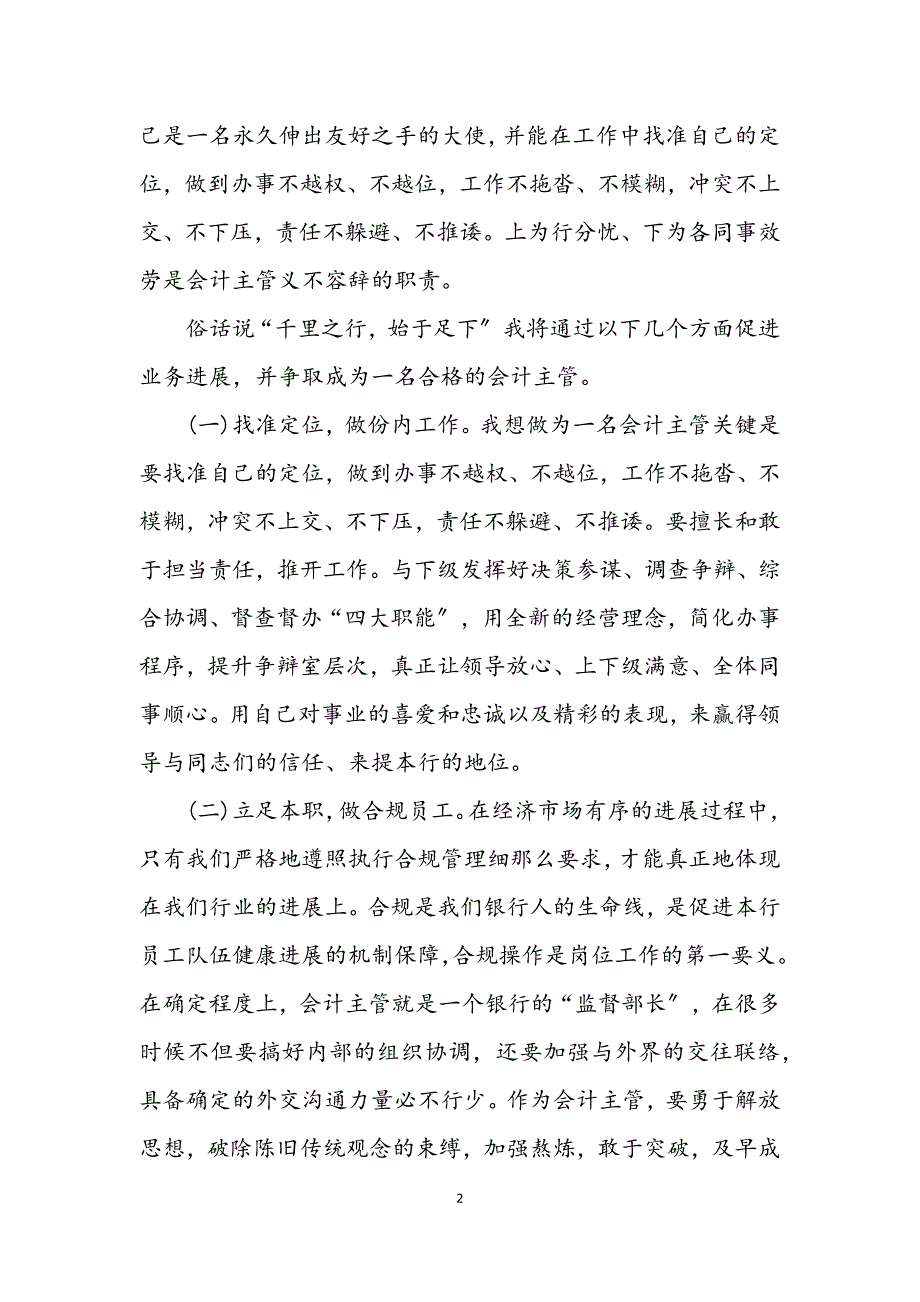 己是一名永久伸出友好之手的大使，并能在工作中找准自己的定
位，做到办事不越权、不越位，工作不拖沓、不模糊，冲突不上
交、不下压，责任不躲避、不推诿。上为行分忧、下为各同事效
劳是会计主管义不容辞的职责。
俗话说“千里之行，始于足下〞我将通过以下几个方面促进
业务进展，并争取成为一名合格的会计主管。
(一)找准定位，做份内工作。我想做为一名会计主管关键是
要找准自己的定位，做到办事不越权、不越位，工作不拖沓、不
模糊，冲突不上交、不下压，责任不躲避、不推诿。要擅长和敢
于担当责任，推开工作。与下级发挥好决策参谋、调查争辩、综
合协调、督查督办“四大职能〞，用全新的经营理念，简化办事
程序，提升争辩室层次，真正让领导放心、上下级满意、全体同
事顺心。用自己对事业的喜爱和忠诚以及精彩的表现，来赢得领
导与同志们的信任、来提本行的地位。
(二)立足本职，做合规员工。在经济市场有序的进展过程中，
只有我们严格地遵照执行合规管理细那么要求，才能真正地体现
在我们行业的进展上。合规是我们银行人的生命线，是促进本行
员工队伍健康进展的机制保障，合规操作是岗位工作的第一要义。
在确定程度上，会计主管就是一个银行的“监督部长〞，在很多
时候不但要搞好内部的组织协调，还要加强与外界的交往联络，
具备确定的外交沟通力量必不行少。作为会计主管，要勇于解放
思想，破除陈旧传统观念的束缚，加强熬炼，敢于突破，及早成
2